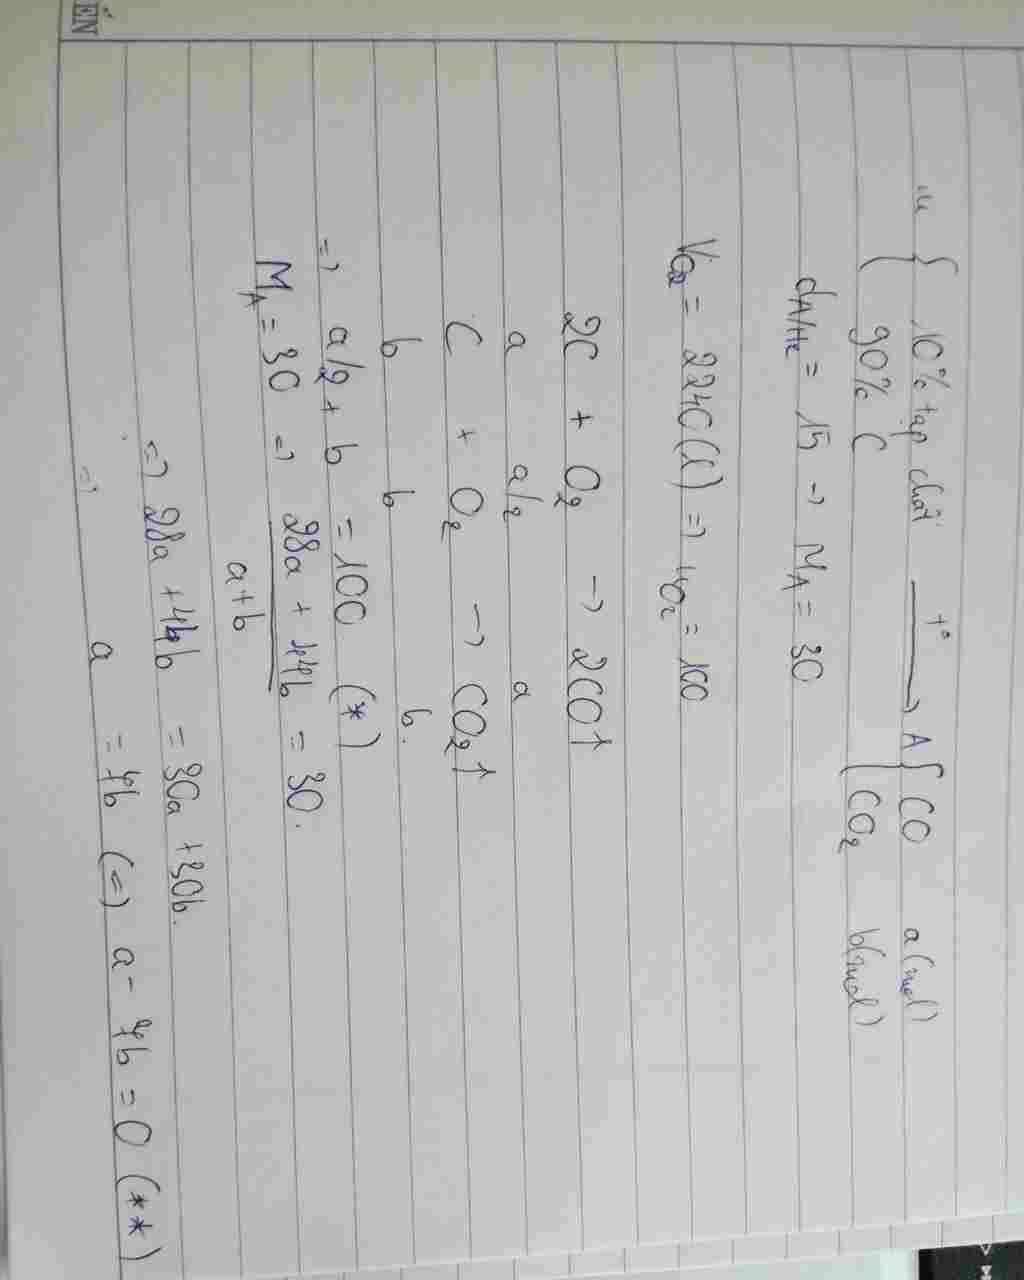 ÉN
m { 10% tạp chất —t°→ A { CO a(mol)
90% C CO2 b(mol)
dA/He = 15 → MA = 30
VO2 = 2240(l) => nO2 = 100
2C + O2 → 2CO↑
a a/2 a
C + O2 → CO2↑
b b b.
=> a/2 + b = 100 (*)
MA = 30 => 28a + 44b / a+b = 30.
=> 28a + 44b = 30a + 30b.
=> a = 7b (=) a - 7b = 0 (**)